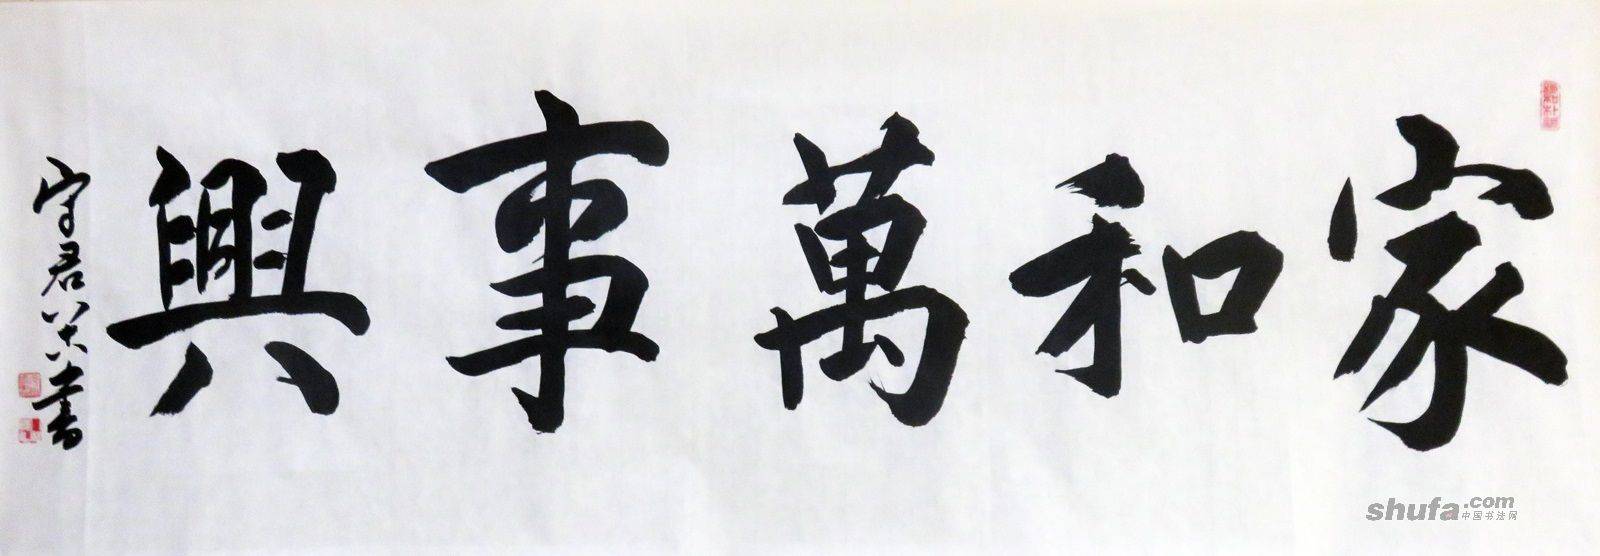 家和萬事興
守君
書
shufa.com
中国书法网